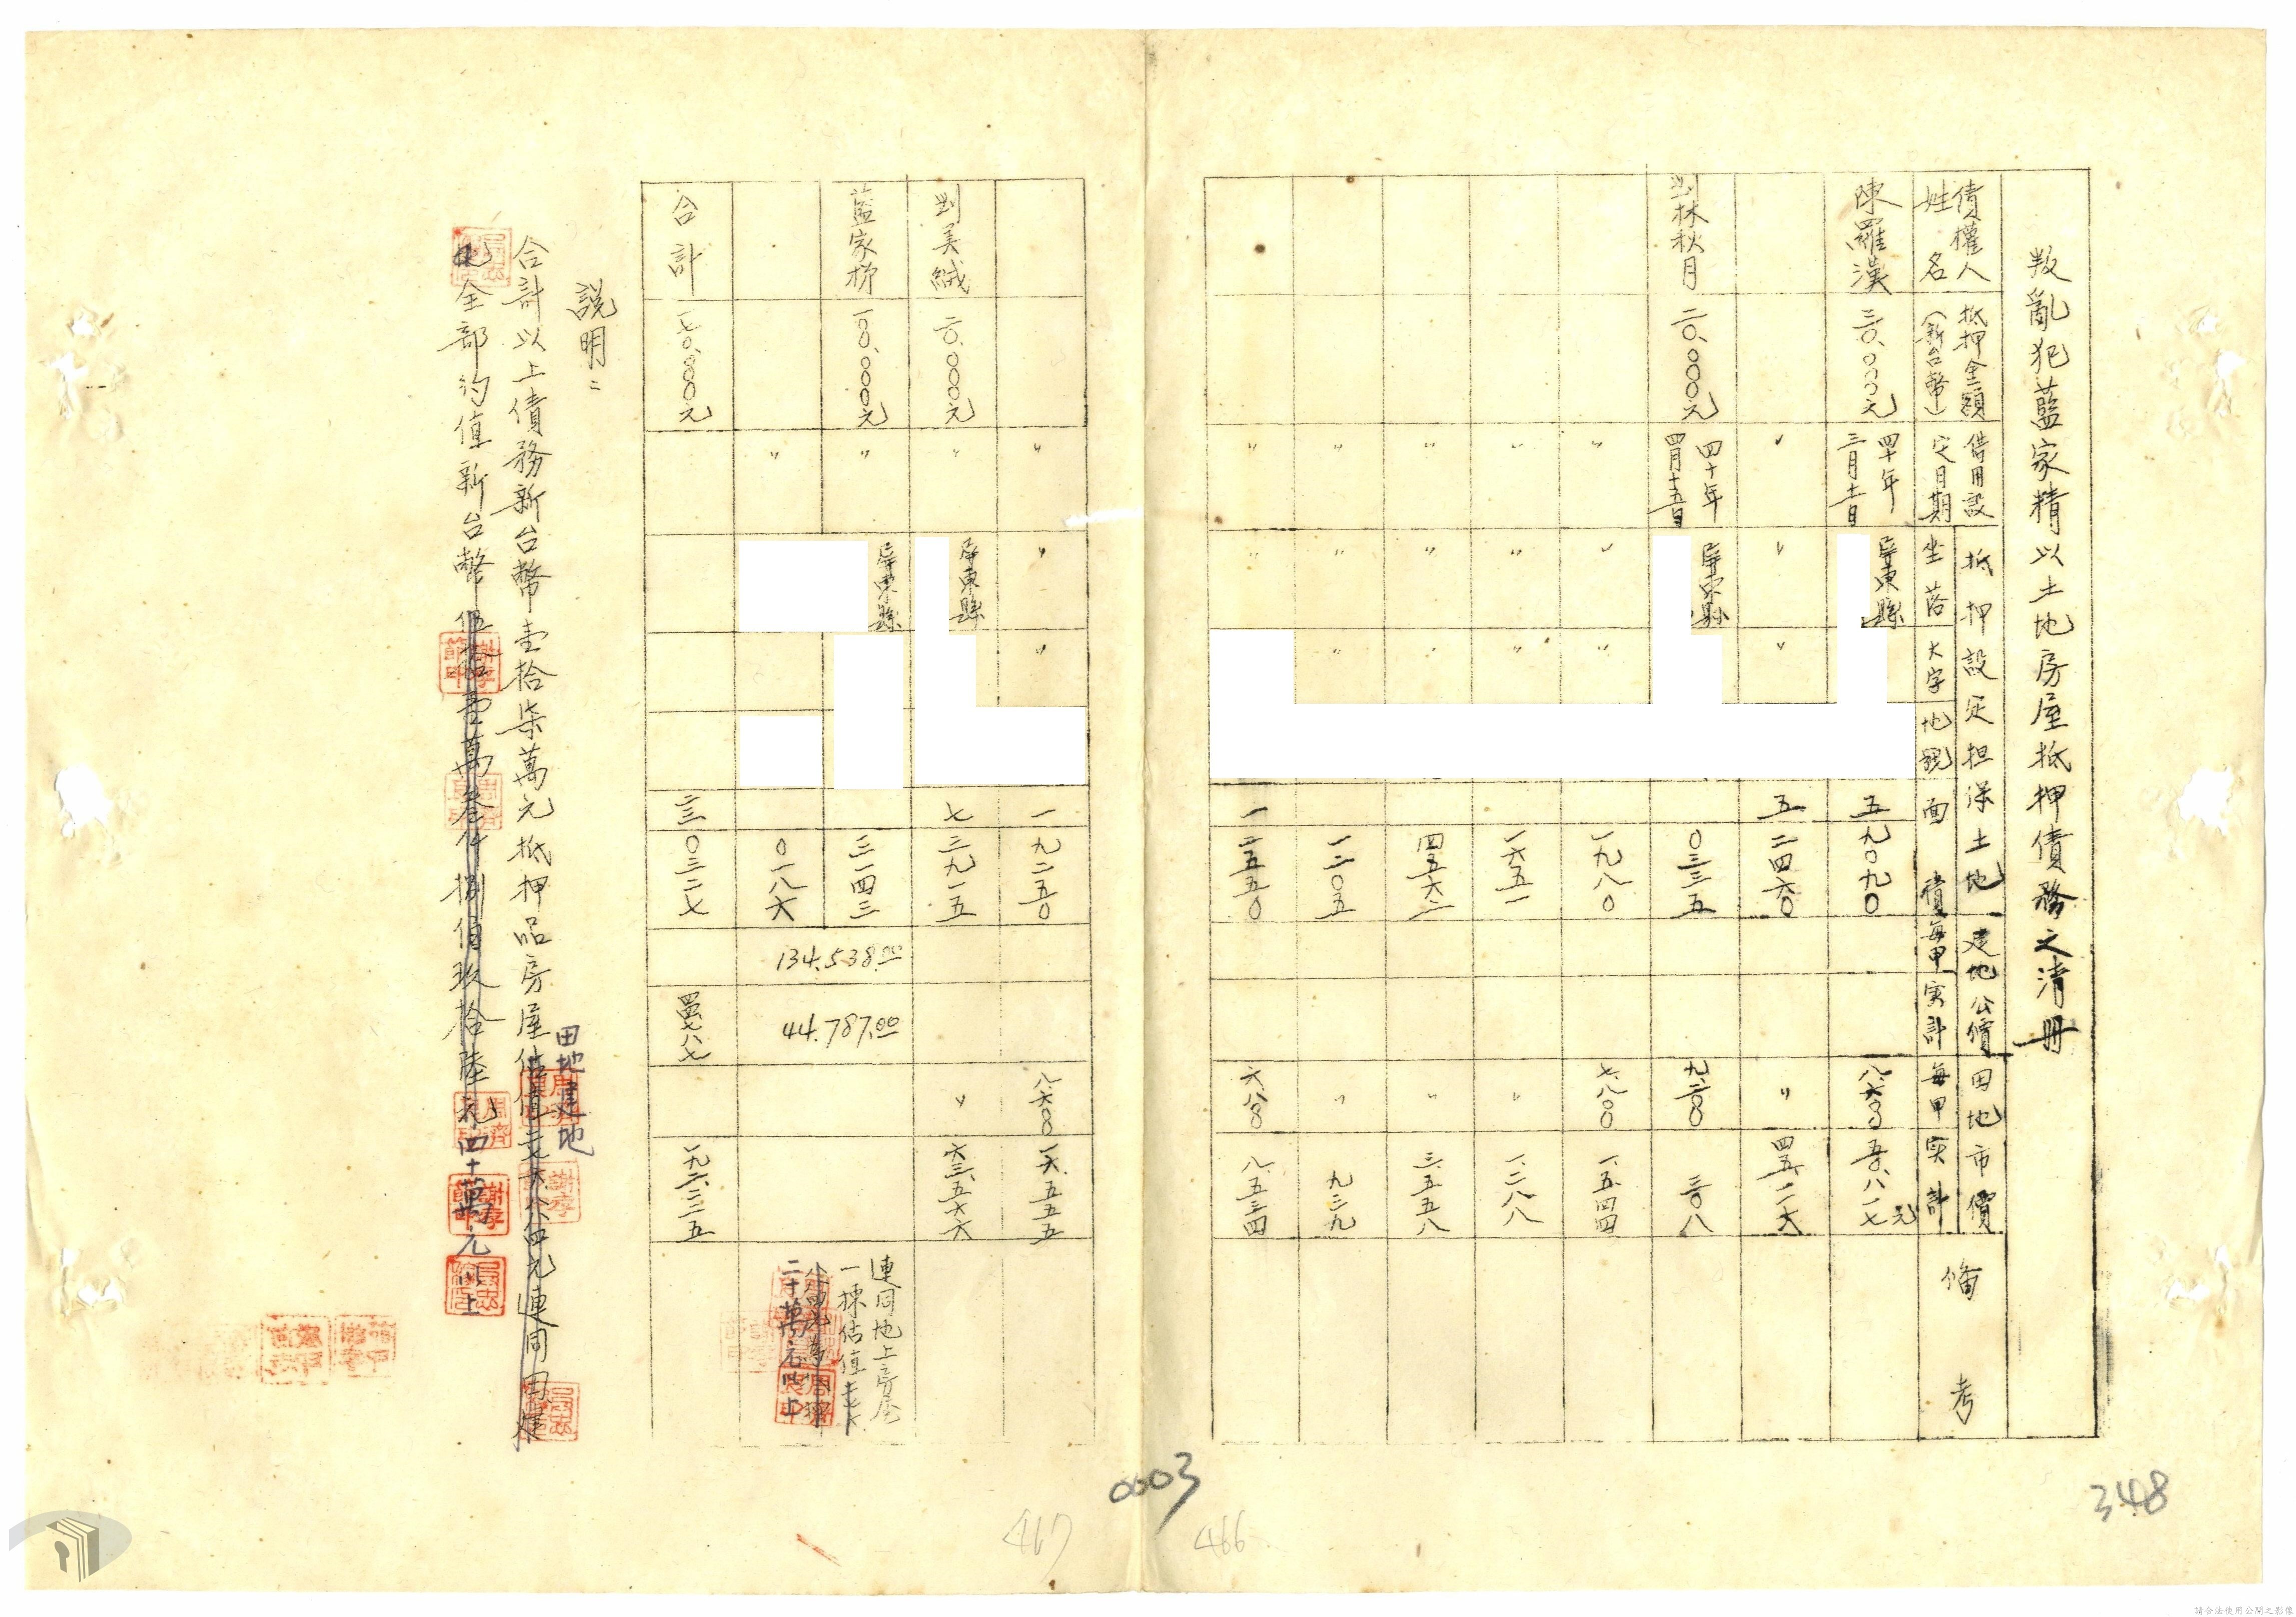 叛亂犯藍家精以土地房屋抵押債務之清冊
債權人姓名
抵押金額（新台幣）
借用設定日期
抵押設定担保土地
坐落
大字
地號
面積
建地公價
每甲
实計
田地市價
每甲
实計
備考
陳羅漢
三〇.〇〇〇元
四十年三月十一日
屏東縣
五
九〇九〇
八.六〇〇
五〇.八一七元
〃
〃
〃
五
二四六〇
〃
四五.一一六
劉林秋月
二〇.〇〇〇元
四十年四月十五日
屏東縣
〇三三五
九.二〇〇
三〇八
〃
〃
〃
一九八〇
七.八〇〇
一.五四四
〃
〃
〃
一六五一
〃
一.二八八
〃
〃
〃
四五六二
〃
三.五五八
〃
〃
〃
一二〇五
〃
九三九
〃
〃
一
二五五〇
六.八〇〇
八.五三四
〃
〃
〃
一
九二五〇
八.六〇〇
一六.五五五
劉美絨
二〇.〇〇〇元
〃
屏東縣
七
三九一五
〃
六三.五六六
藍家栁
一〇〇.〇〇〇元
〃
屏東縣
三一四三
134.538.00
44.787.00
連同地上房屋
一棟估值
二十萬元以上
〃
〇一八六
合計
一七〇.〇〇〇元
二三
〇三二七
四四七八七
一九二.二二五
說明：
合計以上債務新台幣壹拾柒萬元抵押品房屋
田地建地
連同田建
地全部約值新台幣
四十萬元以上
0003
467
466
348
請合法使用公開之影像